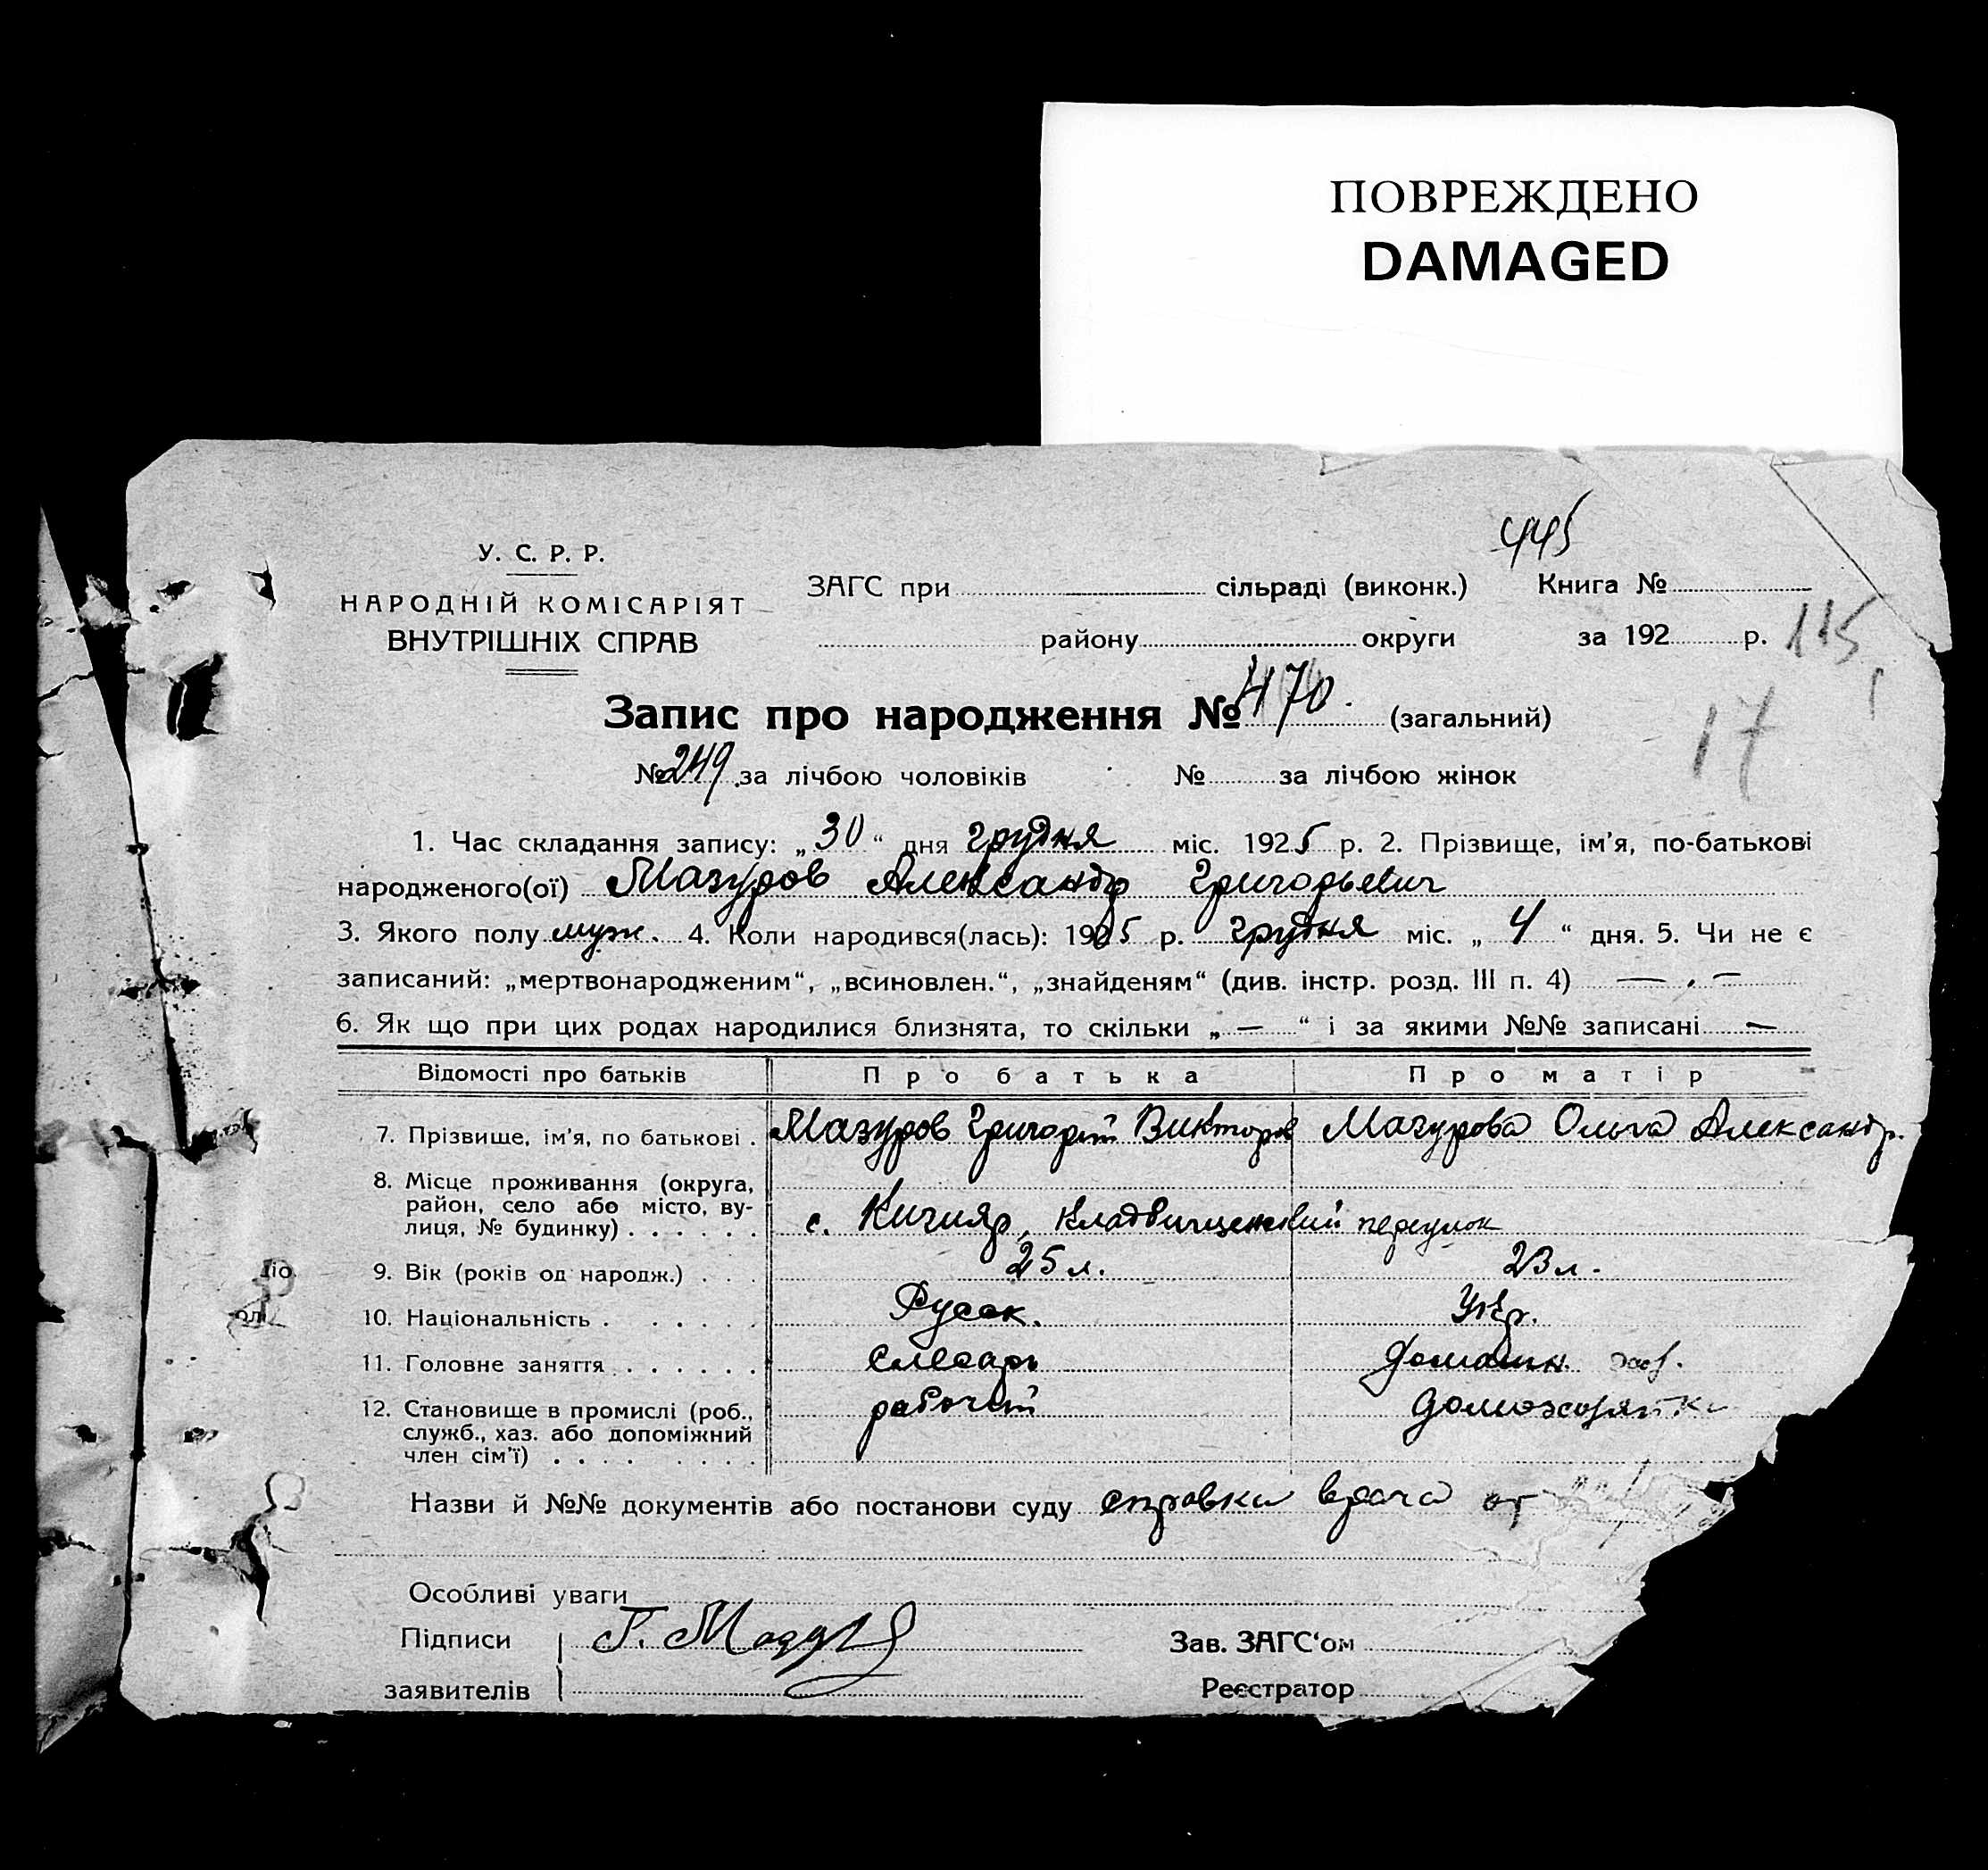 ПОВРЕЖДЕНО
DAMAGED
445
У. С. Р. Р.
НАРОДНІЙ КОМІСАРІЯТ
ВНУТРІШНІХ СПРАВ
ЗАГС при сільраді (виконк.) Книга №
району округи за 192 р. 115
17
Запис про народження № 470. (загальний)
№ 249. за лічбою чоловіків № за лічбою жінок
1. Час складання запису: „30“ дня грудня міс. 1925 р. 2. Прізвище, ім'я, по-батькові
народженого(ої) Мазуров Александр Григорьевич
3. Якого полу муж. 4. Коли народився(лась): 1925 р. грудня міс. „4“ дня. 5. Чи не є
записаний: „мертвонародженим“, „всиновлен.“, „знайденям“ (див. інстр. розд. III п. 4) — . —
6. Як що при цих родах народилися близнята, то скільки „—“ і за якими №№ записані —
Відомості про батьків Про батька Про матір
7. Прізвище, ім'я, по батькові . Мазуров Григорий Викторов Мазурова Ольга Александр.
8. Місце проживання (округа,
район, село або місто, ву-
лиця, № будинку) . . . . . . с. переулок
9. Вік (років од народж.) . . . 25 л. 23 л.
10. Національність . . . . . . Русск. Укр.
11. Головне заняття . . . . . . Слесарь домашн.
12. Становище в промислі (роб., рабочий домохозяйка
служб., хаз. або допоміжний
член сім'ї) . . . . . . . .
Назви й №№ документів або постанови суду справка врача от
Особливі уваги
Підписи
заявителів
Г.
Зав. ЗАГС'ом
Реєстратор